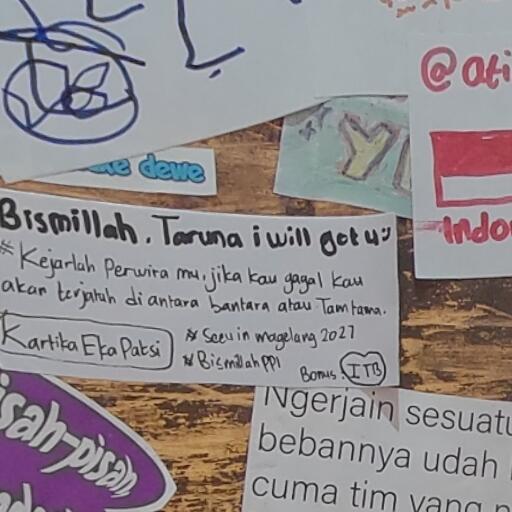 @ati
dewe
Indo
Bismillah. Taruna i will get u :)
* Kejarlah Perwira mu, jika kau gagal kau
akan terjatuh di antara bantara atau Tamtama.
Kartika Eka Paksi
* See u in magelang 2027
* Bismillah PPI
Bonus: ITB
isah-pisah,
Ngerjain sesuatu
bebannya udah
cuma tim yang